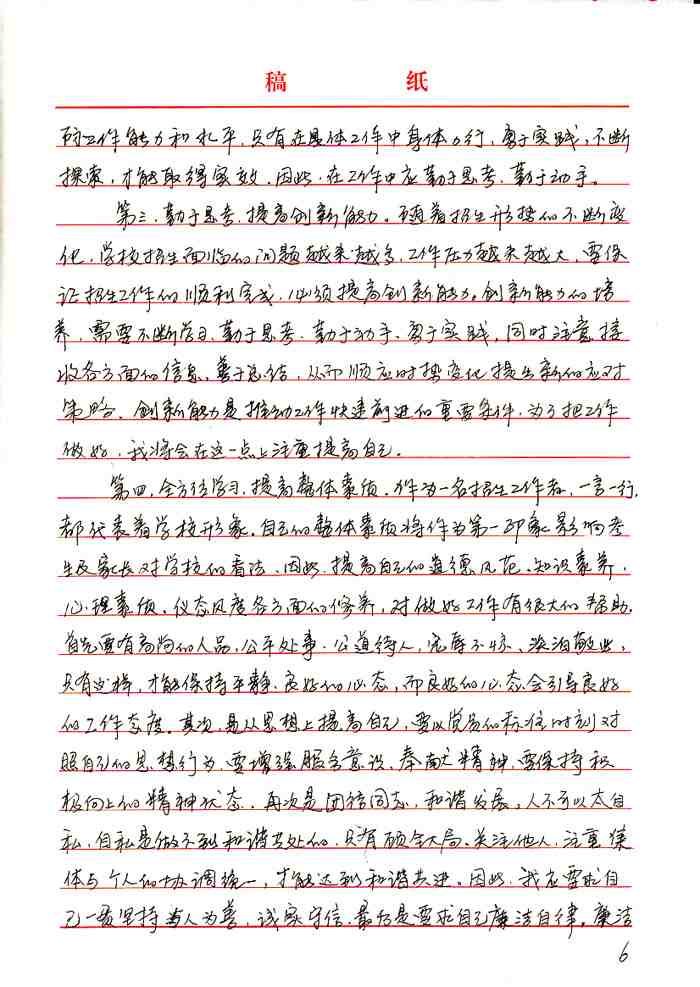 稿 纸
的工作能力和水平,只有在具体工作中身体力行,勇于实践,不断
探索,才能取得实效。因此,在工作中应勤于思考,勤于动手。
第三,勤于思考,提高创新能力。随着招生形势的不断变
化,学校招生面临的问题越来越多,工作压力越来越大,要保
证招生工作的顺利完成,必须提高创新能力。创新能力的培
养,需要不断学习、勤于思考、勤于动手、勇于实践,同时注意接
收各方面的信息,善于总结,从而顺应时势变化提出新的应对
策略。创新能力是推动工作快速前进的重要条件,为了把工作
做好,我将会在这一点上注重提高自己。
第四,全方位学习,提高整体素质。作为一名招生工作者,一言一行,
都代表着学校形象。自己的整体素质将作为第一印象影响考
生及家长对学校的看法。因此,提高自己的道德风范、知识素养、
心理素质、仪态风度各方面的修养,对做好工作有很大的帮助。
首先要有高尚的人品,公平处事、公道待人,宠辱不惊、淡泊敬业,
只有这样,才能保持平静、良好的心态,而良好的心态会引导良好
的工作态度。其次,是从思想上提高自己,要以党员的标准时刻对
照自己的思想行为,要增强服务意识、奉献精神,要保持积
极向上的精神状态。再次是团结同志,和谐发展。人不可以太自
私,自私是做不到和谐共处的。只有顾全大局、关注他人,注重集
体与个人的协调统一,才能达到和谐共进。因此,我应要求自
己一贯坚持与人为善,诚实守信。最后是要求自己廉洁自律。廉洁
6